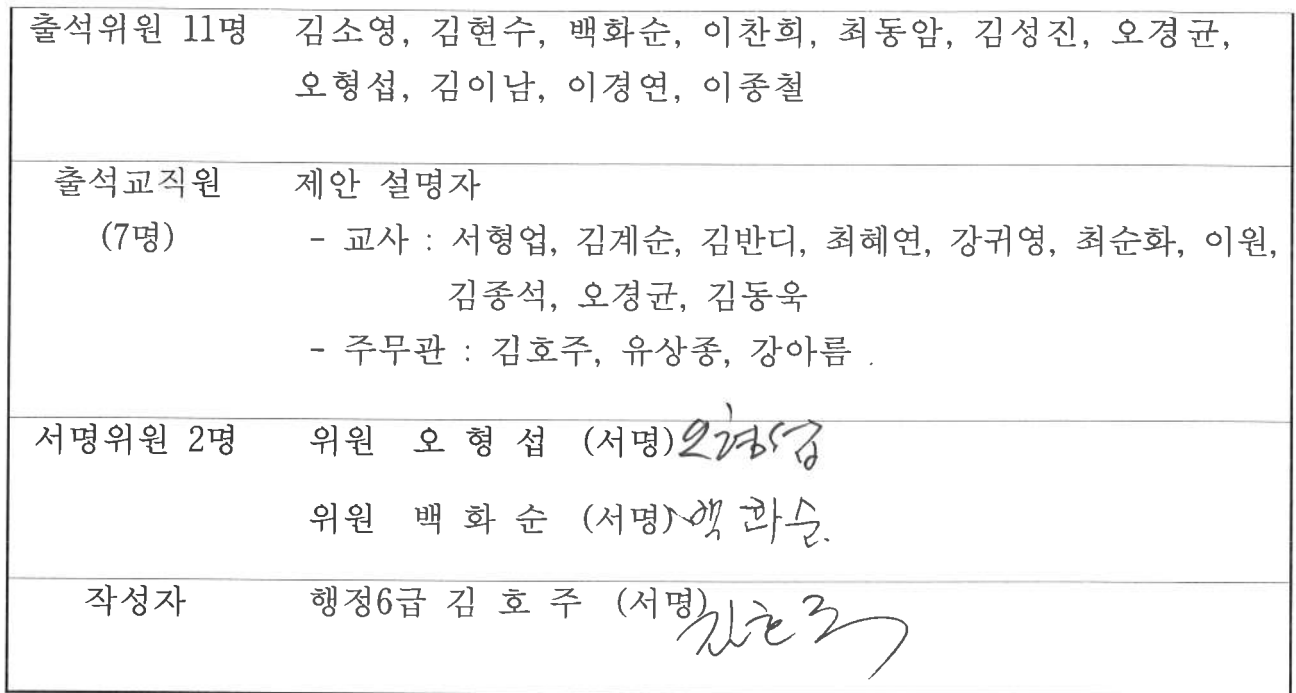 출석위원 11명 김소영, 김현수, 백화순, 이찬희, 최동암, 김성진, 오경균,
오형섭, 김이남, 이경연, 이종철
출석교직원 제안 설명자
(7명) - 교사 : 서형업, 김계순, 김반디, 최혜연, 강귀영, 최순화, 이원,
김종석, 오경균, 김동욱
- 주무관 : 김호주, 유상종, 강아름 .
서명위원 2명 위원 오 형 섭 (서명) 오형섭
위원 백 화 순 (서명) 백화순.
작성자 행정6급 김 호 주 (서명) 김호주